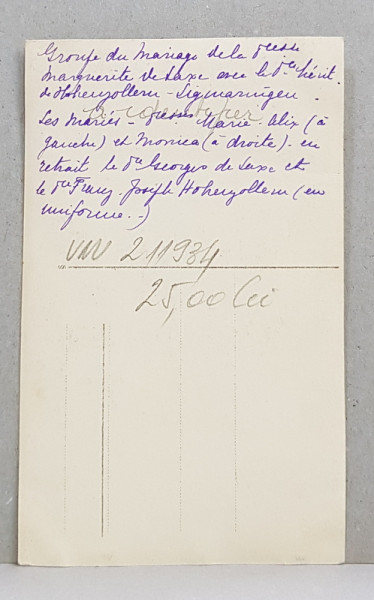 Groupe du Mariage de la Pcesse
Marguerite de Saxe avec le Pce hérit.
de Hohenzollern - Sigmaringen.
Les Mariés - Pcesses Marie-Alix (à
gauche) et Monica (à droite). en
retrait le Pce Georges de Saxe et
le Pce Franz-Joseph Hohenzollern (en
uniforme..)
211934
25,00 lei